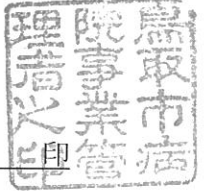 鳥取市病
院事業管
理者之印
印